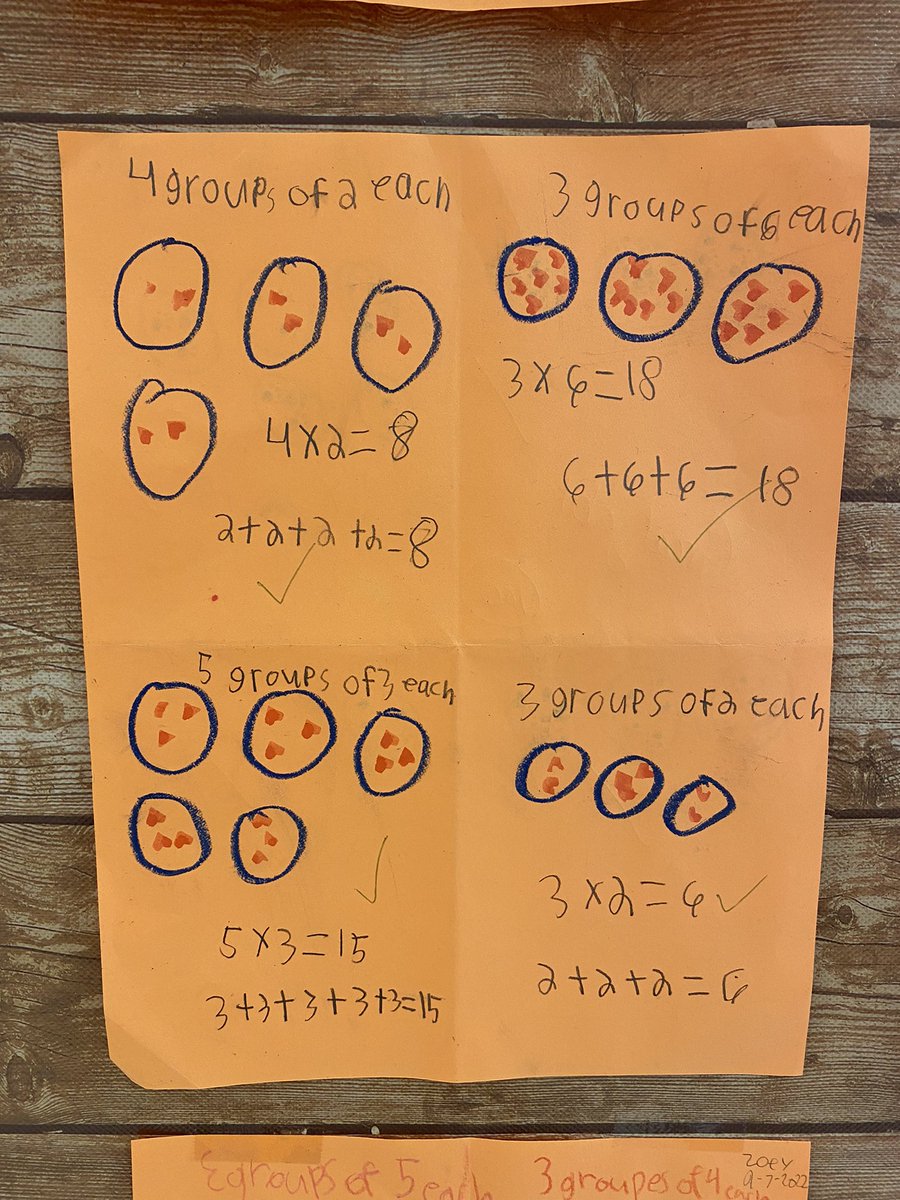 4 groups of 2 each
4 x 2 = 8
2 + 2 + 2 + 2 = 8
3 groups of 6 each
3 x 6 = 18
6 + 6 + 6 = 18
5 groups of 3 each
5 x 3 = 15
3 + 3 + 3 + 3 + 3 = 15
3 groups of 2 each
3 x 2 = 6
2 + 2 + 2 = 6
groups of 5 each
3 groupes of 4 each
Zoey
9-7-2022